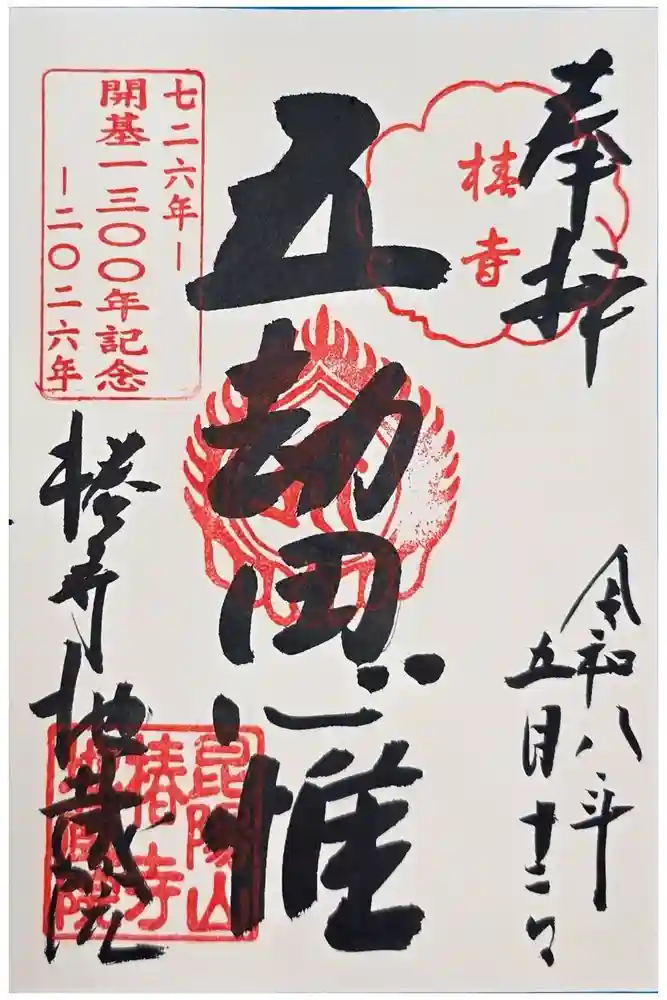 奉拝
椿寺
令和八年
五月十二日
五劫思惟
七二六年ー
開基一三〇〇年記念
ー二〇二六年
椿寺地蔵院
昆陽山
椿寺
地蔵院